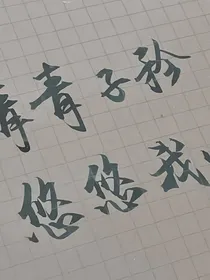 青青子衿
悠悠我